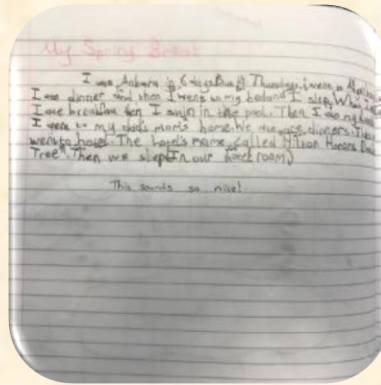 My Spring Break
I was Ankara in 6 days. But Thursday, I went to
I ate dinner and then I went to my bedand I sleep. What I
I ate breakfast then I swim in the pool. Then I ate my
I went to my dad's mom's home. We ate dinners. Then
went to hotel. The hotel's name called Hilton Honors
Tree". Then we slept in our hotel room.
This sounds so nice!